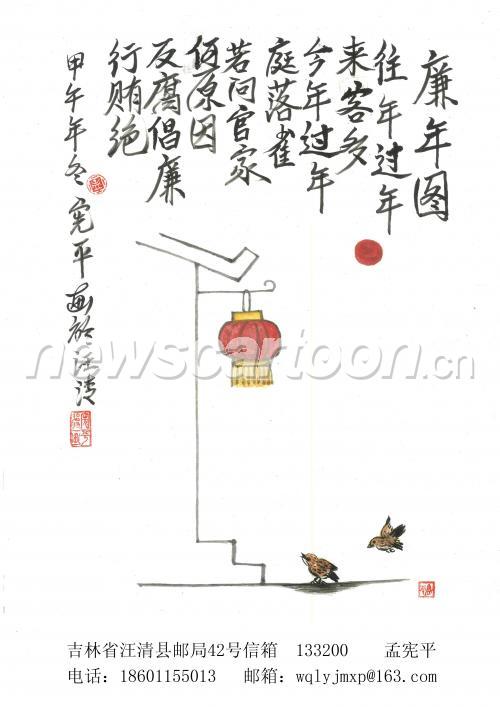 廉年图
往年过年
来客多
今年过年
庭落雀
若问官家
何原因
反腐倡廉
行贿绝
甲午年冬 宪平画于汪清
newscartoon.cn
吉林省汪清县邮局42号信箱 133200 孟宪平
电话：18601155013 邮箱：wqlyjmxp@163.com